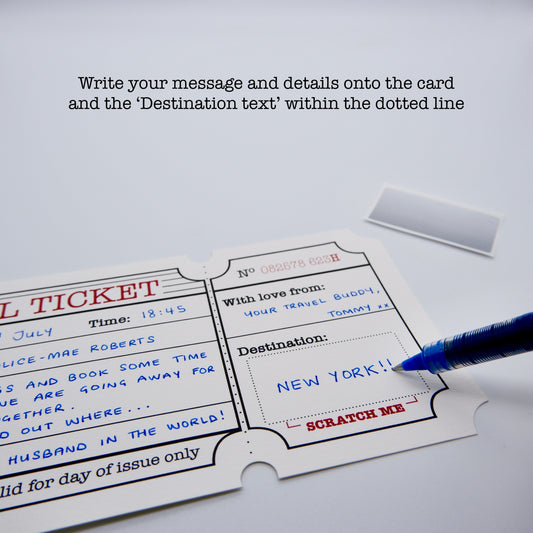 Write your message and details onto the card
and the ‘Destination text’ within the dotted line
L TICKET
JULY
Time: 18:45
LICE-MAE ROBERTS
AND BOOK SOME TIME
WE ARE GOING AWAY FOR
OGETHER.
OUT WHERE...
HUSBAND IN THE WORLD!
lid for day of issue only
Nº 082578 623H
With love from:
YOUR TRAVEL BUDDY,
TOMMY xx
Destination:
NEW YORK!!
SCRATCH ME